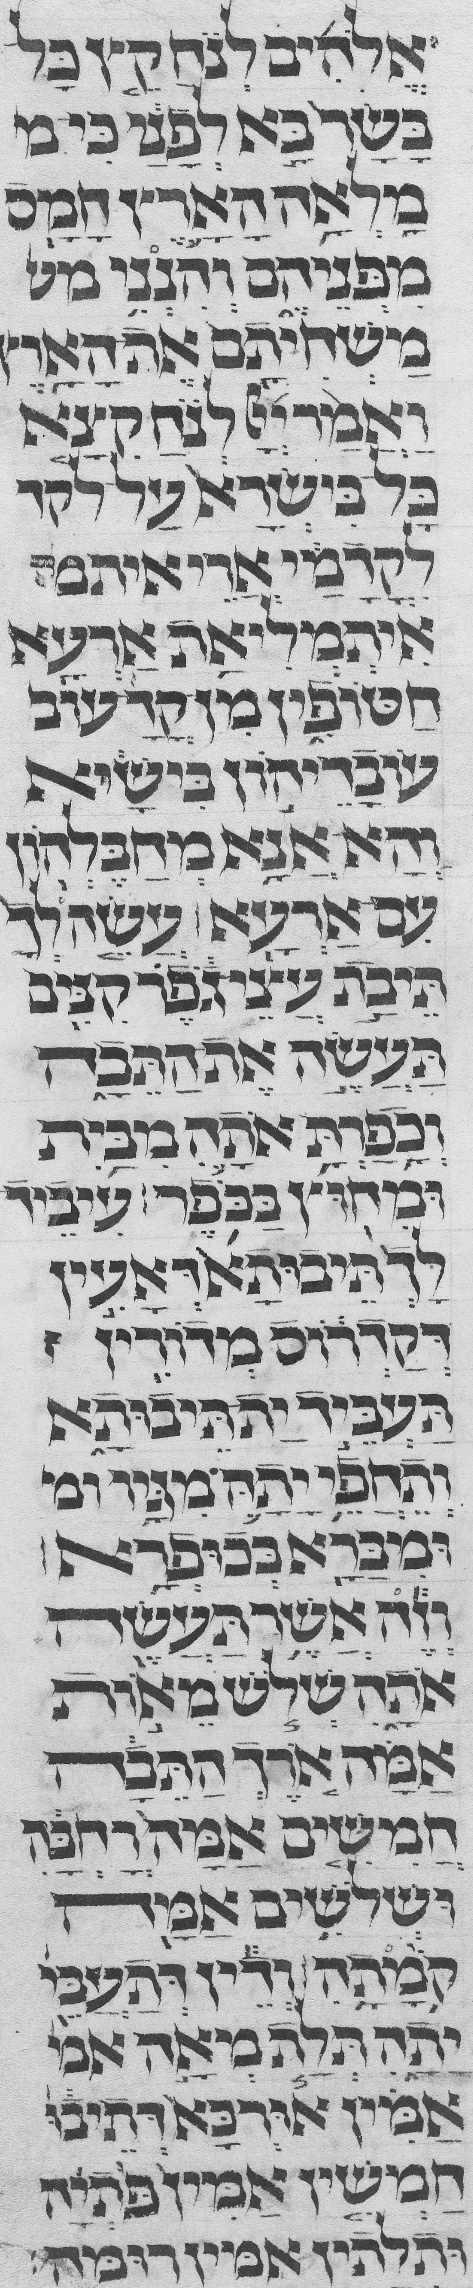 אֱלֹהִים לְנֹחַ קֵץ כָּל
בָּשָׂר בָּא לְפָנַי כִּי מ
מָלְאָה הָאָרֶץ חָמָס
מִפְּנֵיהֶם וְהִנְנִי מש
מַשְׁחִיתָם אֶת הָאָרֶץ
וַאֲמַר יְיָ לְנֹחַ קִצָּא
כָּל בִּישְׂרָא עַל לקד
לִקְדָמַי אֲרֵי איתמ
אִיתְמְלִיאַת אַרְעָא
חֲטוֹפִין מִן קֳדָם עוב
עוֹבָדֵיהוֹן בִּישַׁיָּא
וְהָא אֲנָא מְחַבֵּלְהוֹן
עִם אַרְעָא עֲשֵׂה לְךָ
תֵּיבַת עֲצֵי גֹפֶר קִנִּים
תַּעֲשֶׂה אֶת הַתֵּבָה
וְכָפַרְתָּ אֹתָהּ מִבַּיִת
וּמִחוּץ בַּכֹּפֶר עִיבֵיד
לָךְ תֵּיבוּתָא דְּאָעִין
דְּקַדְרוֹס מְדוֹרִין
תַּעְבֵּיד יָת תֵּיבוּתָא
וְתִחְפֵי יָתַהּ מִגָּיו ומ
וּמִבָּרָא בְּכוּפְרָא
וְזֶה אֲשֶׁר תַּעֲשֶׂה
אֹתָהּ שְׁלֹשׁ מֵאוֹת
אַמָּה אֹרֶךְ הַתֵּבָה
חֲמִשִּׁים אַמָּה רָחְבָּהּ
וּשְׁלֹשִׁים אַמָּה
קֹמָתָהּ וְדֵין דְּתַעְבֵּי
יָתַהּ תְּלָת מְאָה אמי
אַמִּין אוּרְכָּא דְּתֵיבוּ
חַמְשִׁין אַמִּין פְּתָיַהּ
וּתְלָתִין אַמִּין רוּמַהּ